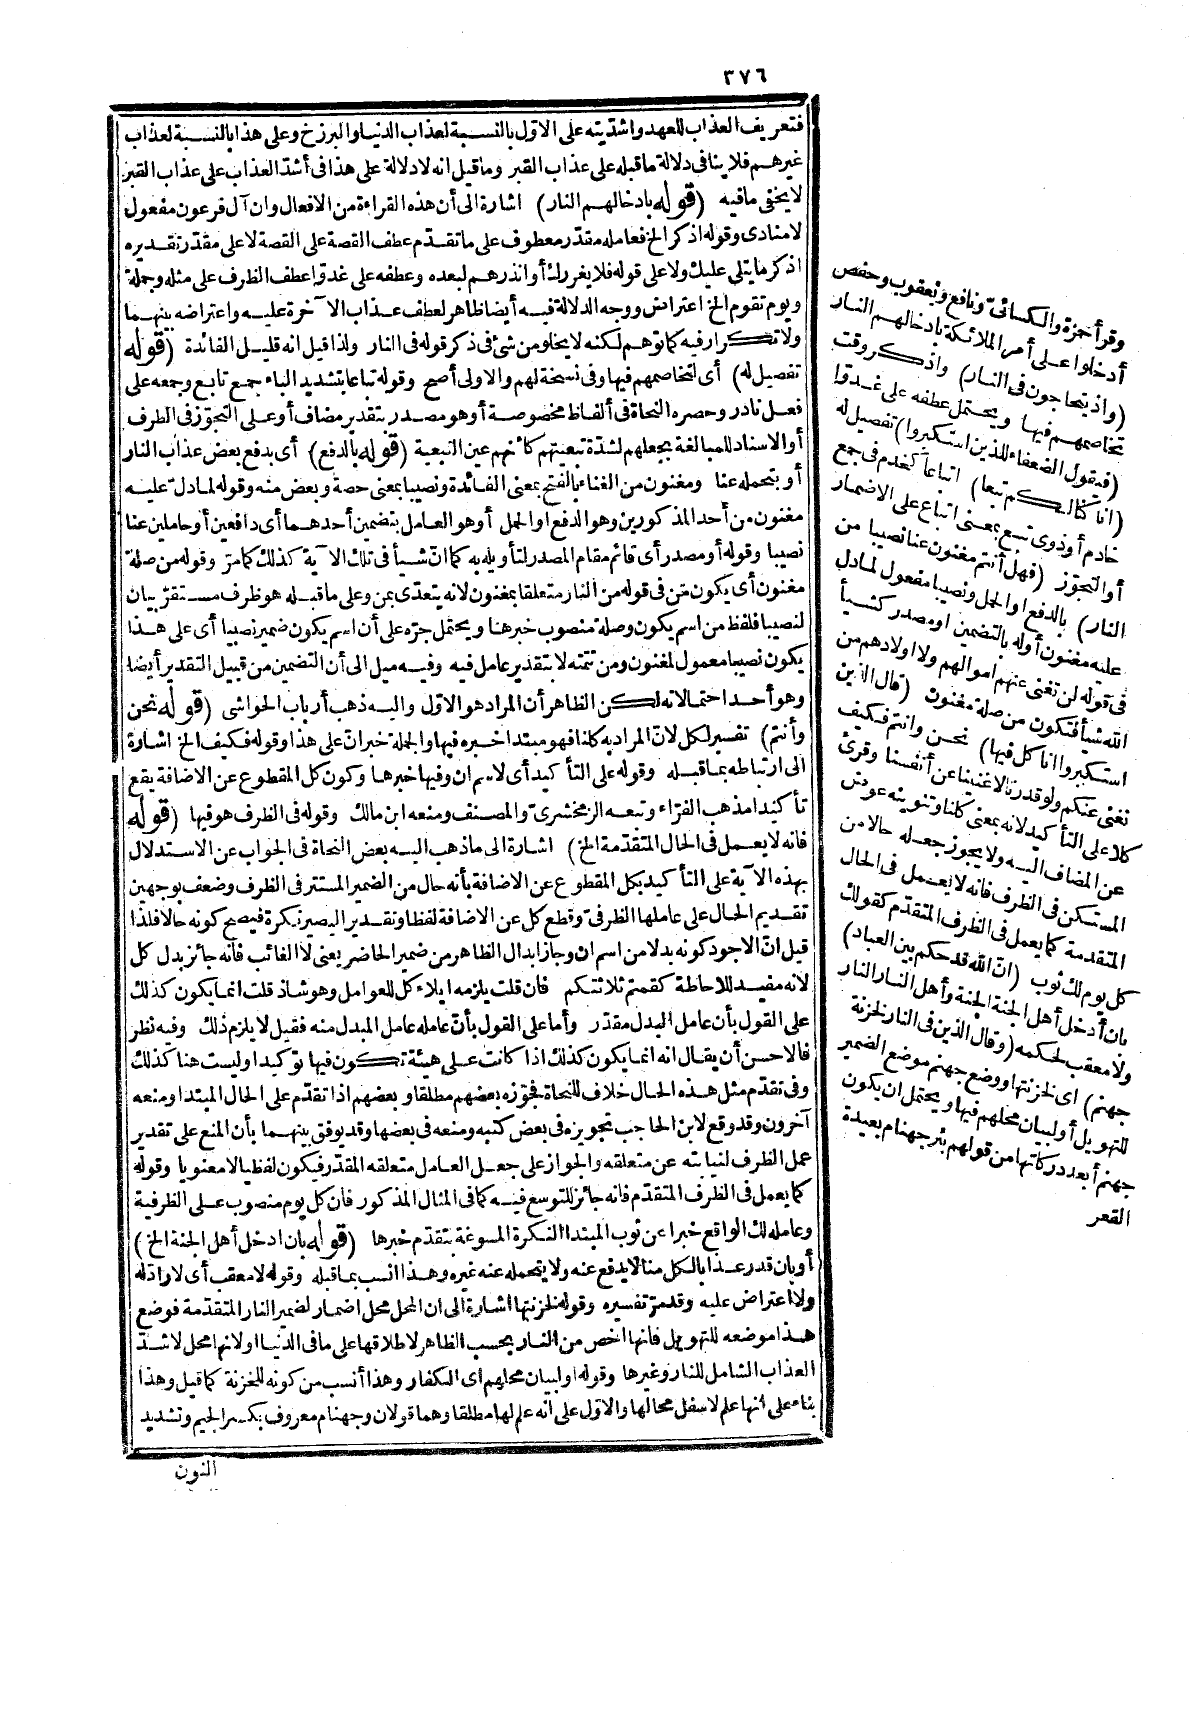 ٣٧٦
فتعريف العذاب للعهد واشدّيته على الاوّل بالنسبة لعذاب الدنيا والبرزخ وعلى هذا بالنسبة لعذاب
غيرهم فلا ينافى دلالة ماقبله على عذاب القبر وماقيل انه لادلالة على هذا فى أشدّ العذاب على عذاب القبر
لا يخفى مافيه (قوله بادخالهم النار) اشارة الى أن هذه القراءة من الافعال وان آل فرعون مفعول
لامنادى وقوله اذكر الخ فعامله مقدّر معطوف على ماتقدّم عطف القصة على القصة لا على مقدّر تقديره
اذكر مايتلى عليك ولا على قوله فلا يغررك أو انذرهم لبعده وعطفه على غدوّا عطف الظرف على مثله وجملة
ويوم تقوم الخ اعتراض ووجه الدلالة فيه أيضا ظاهر لعطف عذاب الآخرة عليه واعتراضه بينهما
ولا تكرار فيه كما توهم لكنه لا يخلو من شئ فى ذكر قوله فى النار ولذا قيل انه قليل الفائدة (قوله
تفصيل له) أى لتخاصمهم فيها وفى نسخة لهم والاولى أصح وقوله تباعا بتشديد الباء جمع تابع وجمعه على
فعل نادر وحصره النحاة فى ألفاظ مخصوصة أو هو مصدر بتقدير مضاف أو على التجوّز فى الطرف
أو الاسناد للمبالغة بجعلهم لشدة تبعيتهم كأنهم عين التبعية (قوله بالدفع) أى بدفع بعض عذاب النار
أو بتحمله عنا ومغنون من الغناء بالفتح بمعنى الفائدة ونصيبا بمعنى حصة وبعض منه وقوله لمادلّ عليه
مغنون من أحد المذكورين وهو الدفع او الحمل أو هو العامل بتضمين أحدهما أى دافعين أو حاملين عنا
نصيبا وقوله أو مصدر أى قائم مقام المصدر لتأويله به كما انّ شيأ فى تلك الآية كذلك كمامرّ وقوله من صلة
مغنون أى يكون من فى قوله من النار متعلقا بمغنون لانه يتعدّى بمن وعلى ماقبله هو ظرف مستقرّ بيان
لنصيبا فلفظ من اسم يكون وصلة منصوب خبرها ويحتمل جرّه على أن اسم يكون ضمير نصيبا أى على هذا
يكون نصيبا معمول لمغنون ومن تتمته لا بتقدير عامل فيه وفيه ميل الى أن التضمين من قبيل التقدير أيضا
وهو أحد احتمالاته لكن الظاهر أن المراد هو الاوّل واليه ذهب أرباب الحواشى (قوله نحن
وأنتم) تفسير لكل لانّ المراد به كلنا فهو مبتدا خبره فيها والجملة خبر انّ على هذا وقوله فكيف الخ اشارة
الى ارتباطه بماقبله وقوله على التأكيد أى لاسم ان وفيها خبرها وكون كل المقطوع عن الاضافة يقع
تأكيدا مذهب الفرّاء وتبعه الزمخشرىّ والمصنف ومنعه ابن مالك وقوله فى الظرف هو فيها (قوله
فانه لا يعمل فى الحال المتقدّمة الخ) اشارة الى ماذهب اليه بعض النحاة فى الجواب عن الاستدلال
بهذه الآية على التأكيد بكل المقطوع عن الاضافة بأنه حال من الضمير المستتر فى الظرف وضعف بوجهين
تقديم الحال على عاملها الظرفىّ وقطع كل عن الاضافة لفظا وتقديرا ليصير نكرة فيصح كونه حالا فلذا
قيل انّ الاجود كونه بدلا من اسم ان وجاز ابدال الظاهر من ضمير الحاضر يعنى لا الغائب فانه جائز بدل كل
لأنه مفيد للاحاطة كقمتم ثلاثتكم فان قلت يلزمه ايلاء كل للعوامل وهو شاذ قلت انما يكون كذلك
على القول بأن عامل البدل مقدّر وأما على القول بأنّ عامله عامل المبدل منه فقيل لا يلزم ذلك وفيه نظر
فالاحسن أن يقال انه انما يكون كذلك اذا كانت على هيئة تكون فيها توكيدا وليست هنا كذلك
وفى تقدّم مثل هذه الحال خلاف للنحاة فجوّزه بعضهم مطلقا وبعضهم اذا تقدّم على الحال المبتدا ومنعه
آخرون وقد وقع لابن الحاجب تجويزه فى بعض كتبه ومنعه فى بعضها وقد يوفق بينهما بأن المنع على تقدير
عمل الظرف لنيابته عن متعلقه والجواز على جعل العامل متعلقه المقدّر فيكون لفظيا لا معنويا وقوله
كما يعمل فى الظرف المتقدّم فانه جائز للتوسع فيه كما فى المثال المذكور فان كل يوم منصوب على الظرفية
وعامله لك الواقع خبرا عن ثوب المبتدا النكرة المسوغة بتقدّم خبرها (قوله بان ادخل أهل الجنة الخ)
أو بان قدر عذابا لكل منا لا يدفع عنه ولا يتحمله عنه غيره وهذا انسب بماقبله وقوله لا معقب أى لا رادّ له
ولا اعتراض عليه وقد مرّ تفسيره وقوله لخزنتها اشارة الى ان المحل محل اضمار لضمير النار المتقدّمة فوضع
هذا موضعه للتهويل فانها اخص من النار بحسب الظاهر لاطلاقها على مافى الدنيا او لانها محل لاشدّ
العذاب الشامل للنار وغيرها وقوله او لبيان محلهم اى الكفار وهذا أنسب من كونه للخزنة كما قيل وهذا
بناء على انها علم لاسفل محالها والاوّل على انه علم لها مطلقا وهما قولان وجهنام معروف بكسر الجيم وتشديد
النون
وقرأ حمزة والكسائىّ ونافع ويعقوب وحفص
أدخلوا على أمر الملائكة بادخالهم النار
(واذ يتحاجون فى النار) واذكر وقت
تخاصمهم فيها ويحتمل عطفه على غدوّا
(فيقول الضعفاء للذين استكبروا) تفصيل له
(انا كنا لكم تبعا) اتباعاً كخدم فى جمع
خادم أو ذوى تبع بمعنى اتباع على الاضمار
أو التجوّز (فهل أنتم مغنون عنا نصيبا من
النار) بالدفع او الحمل ونصيبا مفعول لمادل
عليه مغنون أوله بالتضمين او مصدر كشيأ
فى قوله لن تغنى عنهم اموالهم ولا اولادهم من
الله شيأ فتكون من صلة مغنون (قال الذين
استكبروا انا كل فيها) نحن وانتم فكيف
نغنى عنكم ولو قدرنا لاغنينا عن أنفسنا وقرئ
كلا على التأكيد لانه بمعنى كلنا وتنوينه عوض
عن المضاف اليه ولا يجوز جعله حالا من
المستكن فى الظرف فانه لا يعمل فى الحال
المتقدمة كما يعمل فى الظرف المتقدّم كقولك
كل يوم لك ثوب (انّ الله قد حكم بين العباد)
بان أدخل أهل الجنة الجنة وأهل النار النار
ولا معقب لحكمه (وقال الذين فى النار لخزنة
جهنم) اى لخزنتها ووضع جهنم موضع الضمير
للتهويل أو لبيان محلهم فيها ويحتمل ان يكون
جهنم أبعد دركاتها من قولهم بئر جهنام بعيدة
القعر